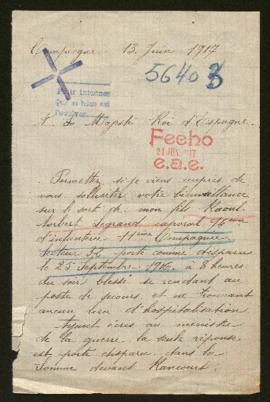 13 Juin 1917
56403
Pour informer
que sa lettre est
A Sa Majesté Roi d'Espagne.
Fecho
21 JUN. 17
e.a.e.
Permettez si je viens auprès de
vous solliciter votre bienveillance
sur le sort de mon fils Raoul
Norbert Legrand caporal
d'infanterie 11eme Compagnie
secteur porté comme disparu
le 25 Septembre 1916 à 8 heures
du soir blessé se rendant au
poste de secours et ne trouvant
aucun lieu d'hospitalisation
Ayant écris au ministre
de la guerre la seule réponse
est porté disparu dans la
Somme devant Rancourt.